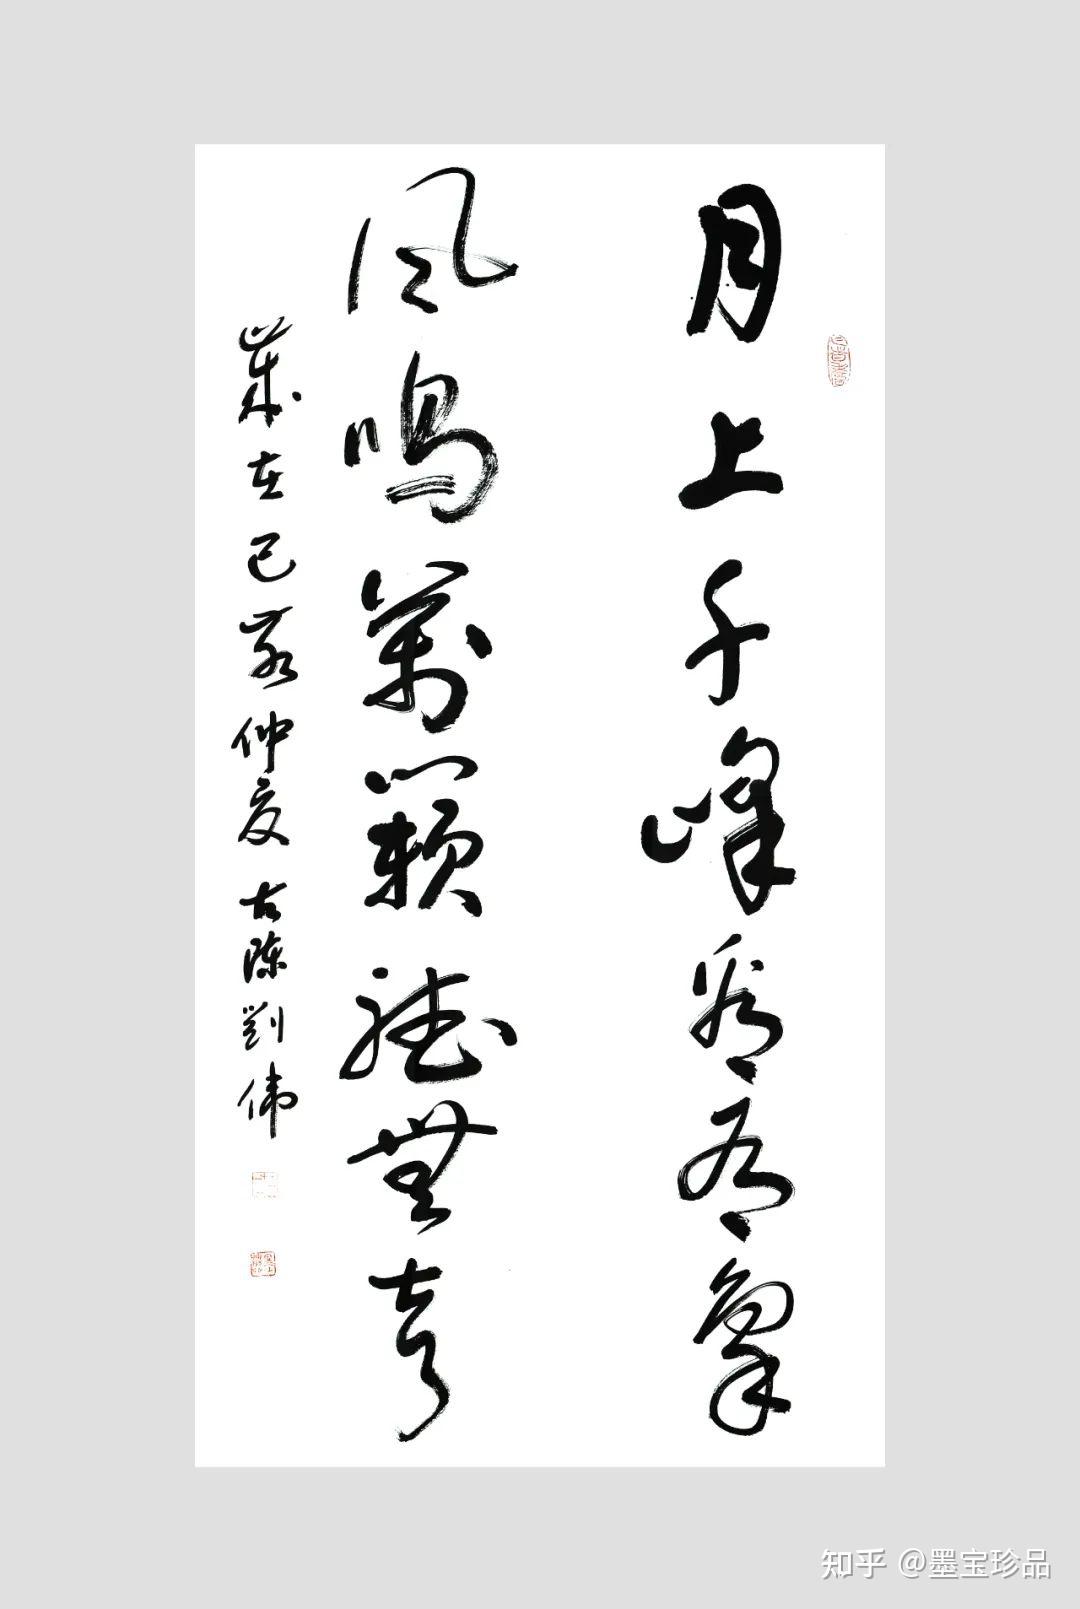 月上千峰看有象
風鳴萬籟聽無聲
歲在己亥仲夏古陳劉偉
知乎 @墨宝珍品